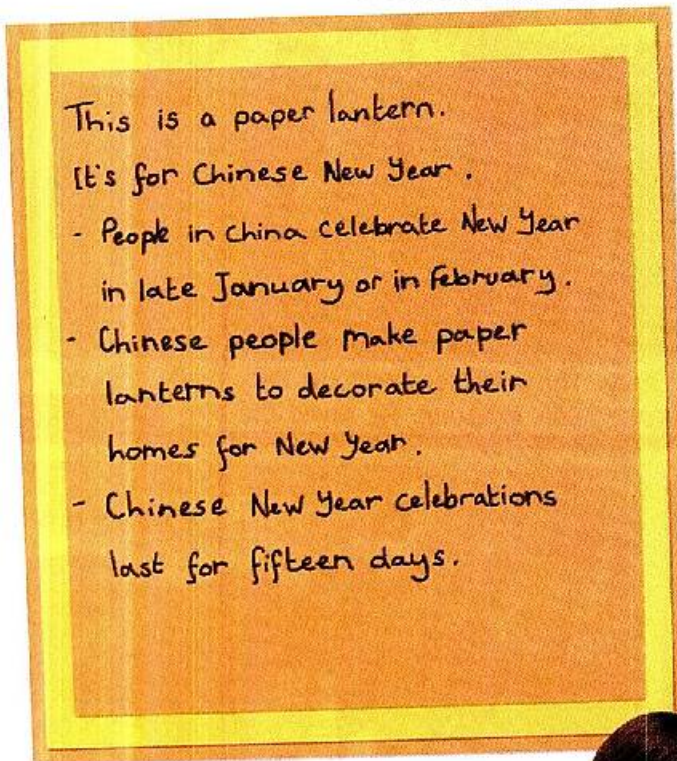 This is a paper lantern.
It's for Chinese New Year.
- People in China celebrate New Year
in late January or in February.
- Chinese people make paper
lanterns to decorate their
homes for New Year.
- Chinese New Year celebrations
last for fifteen days.